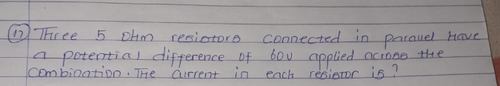 (17) Three 5 Ohm resistors connected in parallel have
a potential difference of 60V applied across the
combination. The current in each resistor is?